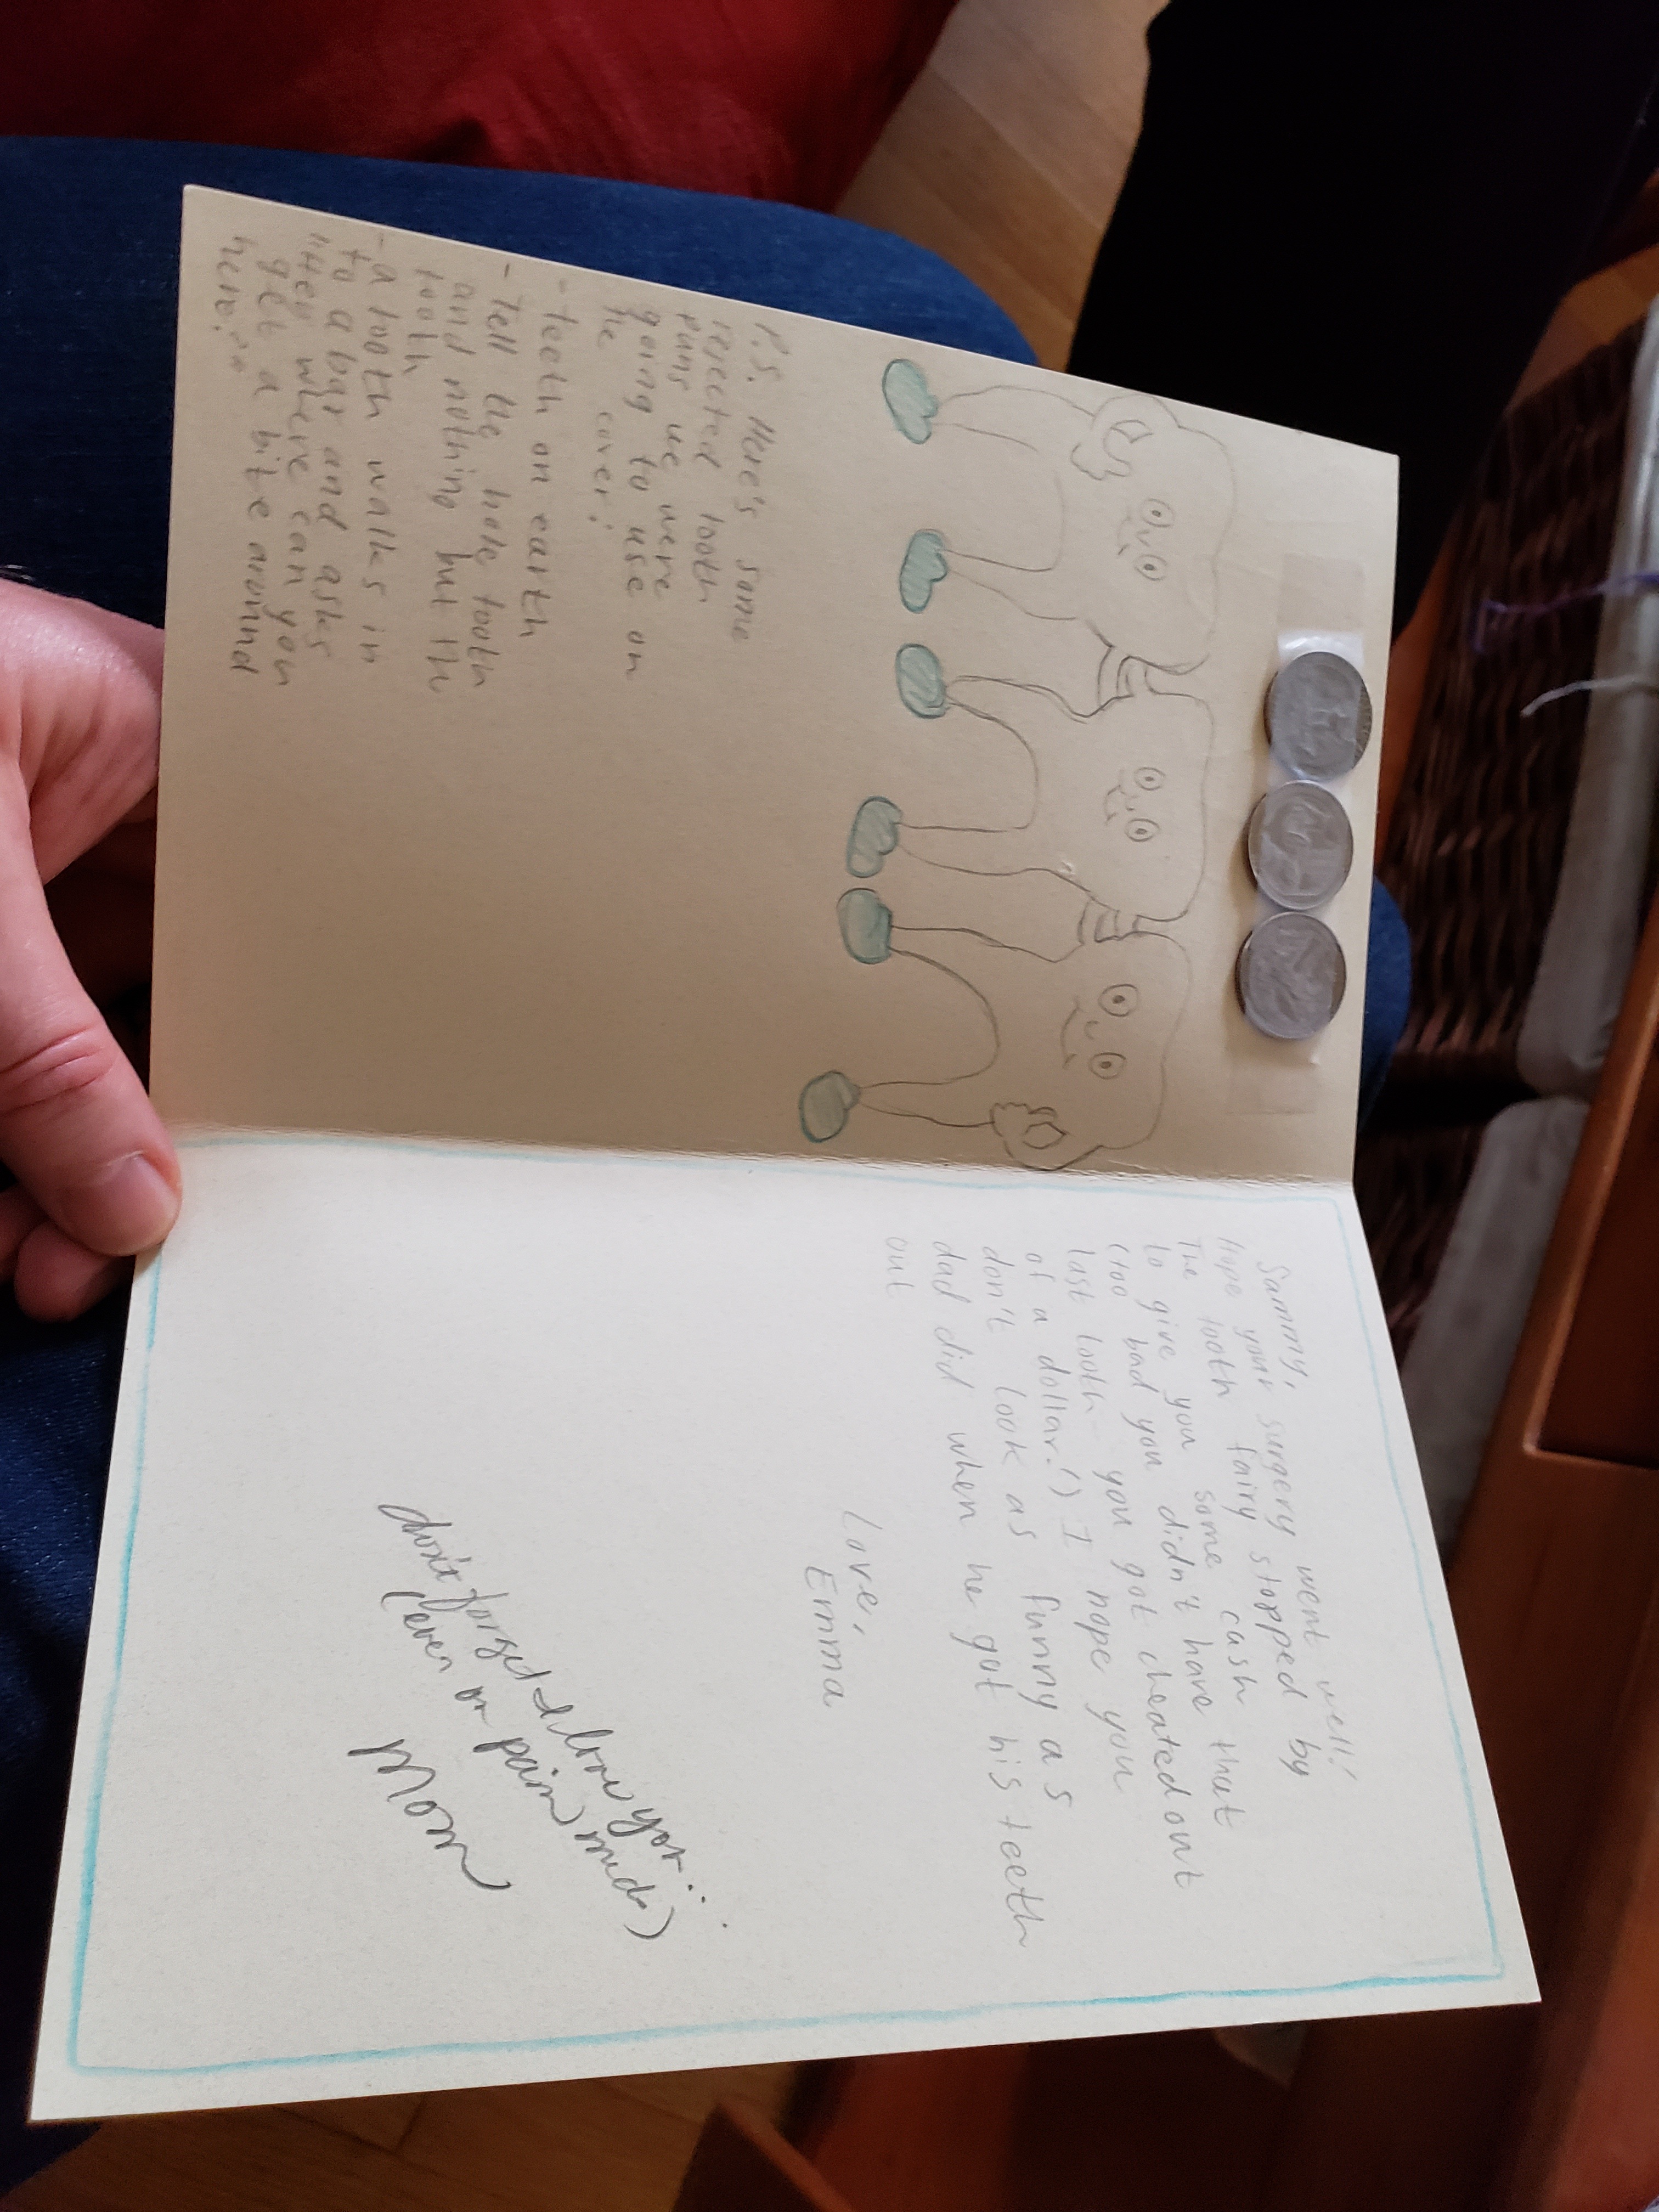 P.S. Here's some
rejected tooth
puns we were
going to use on
the cover:
- teeth on earth
- Tell the hole tooth
and nothing but the
tooth
- a tooth walks in
to a bar and asks
where can you
get a bite around
here?
Sammy,
Hope your surgery went well!
The tooth fairy stopped by
to give you some cash that
(too bad you didn't have that
last tooth - you got cheated out
of a dollar!) I hope you
don't look as funny as
dad did when he got his teeth
out
Love,
Emma
don't forget I love you!!
(even on pain meds)
Mom